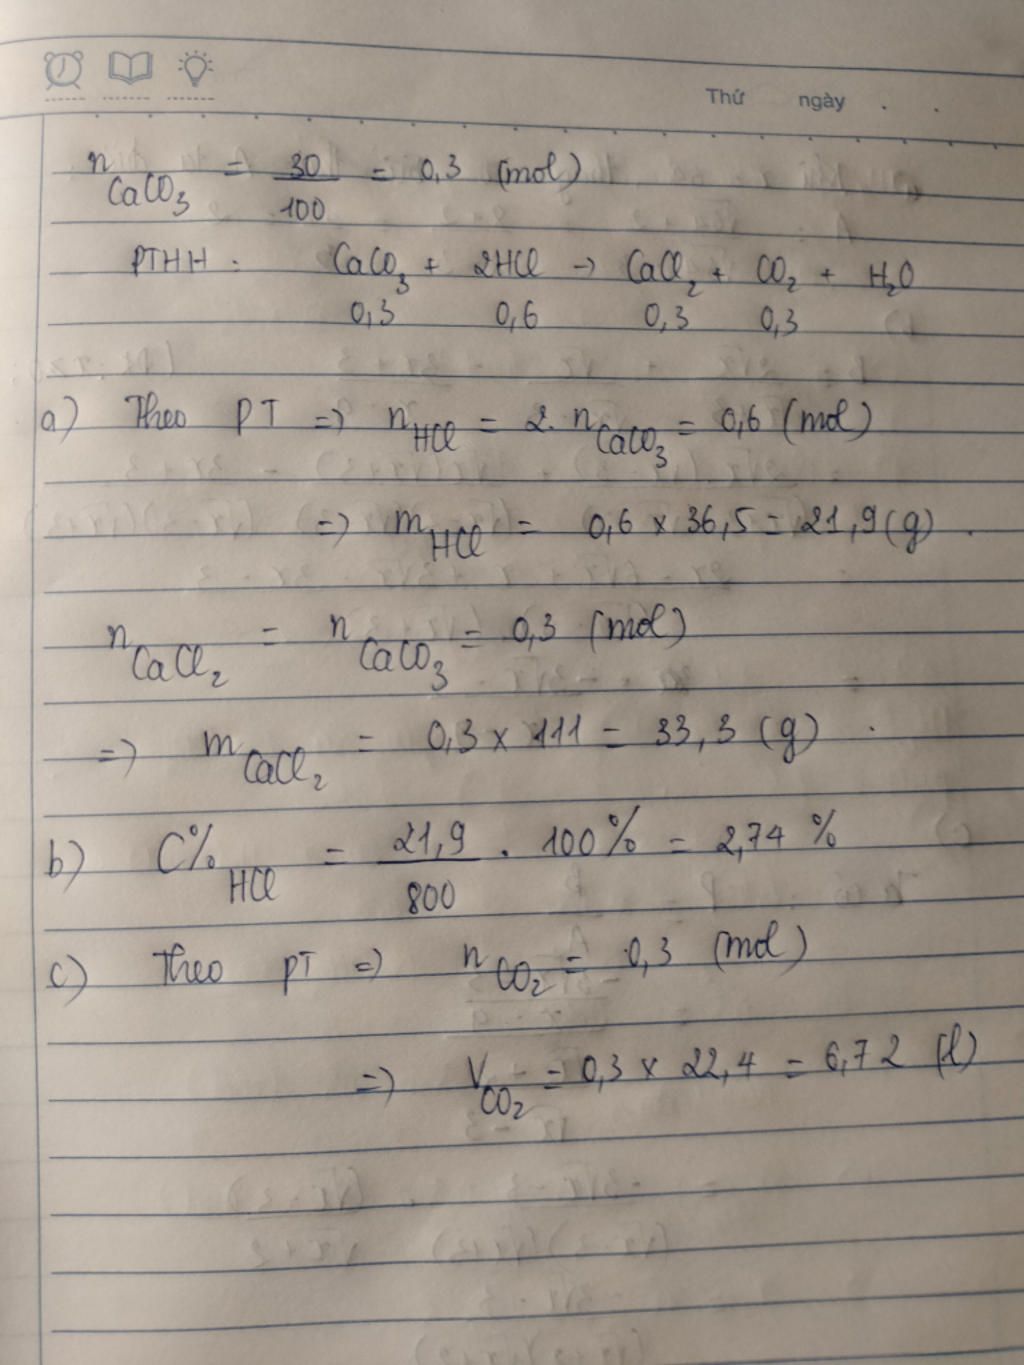 Thứ ngày . .
n CaCO3 = 30/100 = 0,3 (mol)
PTHH : CaCO3 + 2HCl → CaCl2 + CO2 + H2O
0,3 0,6 0,3 0,3
a) Theo PT => nHCl = 2. nCaCO3 = 0,6 (mol)
=> mHCl = 0,6 x 36,5 = 21,9 (g) .
nCaCl2 = nCaCO3 = 0,3 (mol)
=> mCaCl2 = 0,3 x 111 = 33,3 (g) .
b) C% HCl = 21,9/800 . 100% = 2,74 %
c) Theo PT => nCO2 = 0,3 (mol)
=> VCO2 = 0,3 x 22,4 = 6,72 (l)